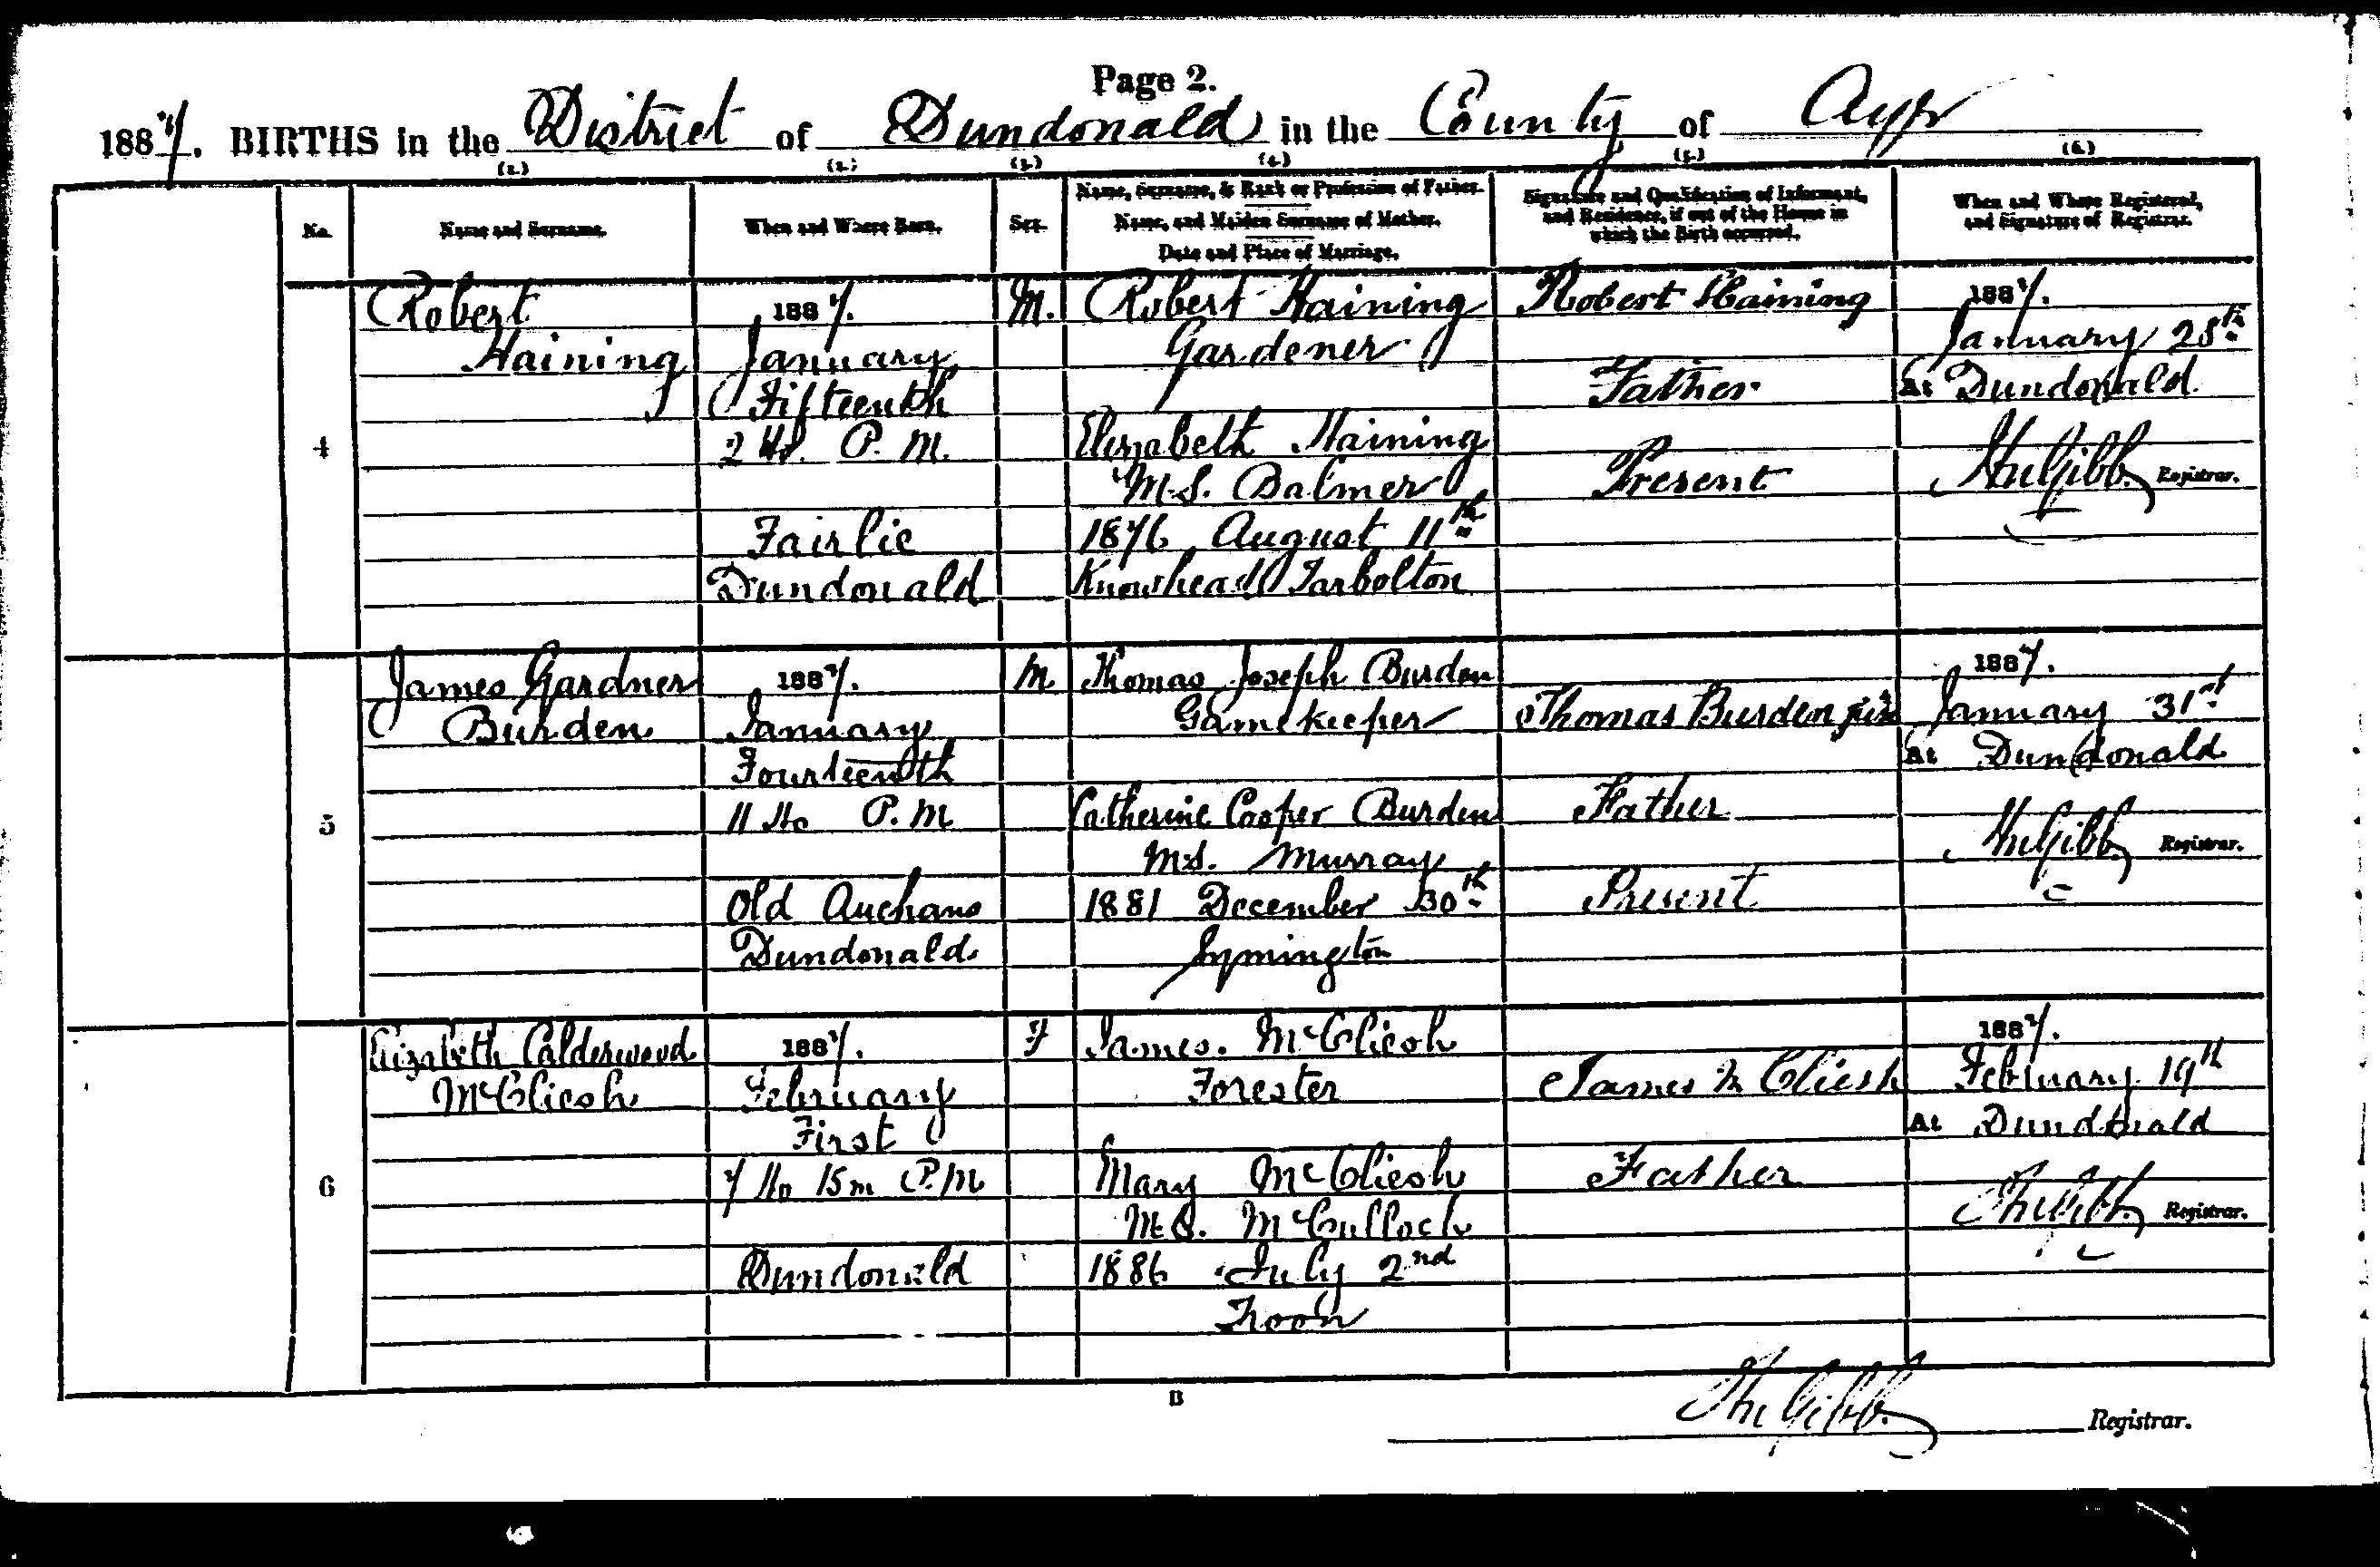 Page 2.
1887. BIRTHS in the District of Dundonald in the County of Ayr
(1.) (2.) (3.) (4.) (5.) (6.)
No.
Name and Surname.
When and Where Born.
Sex.
Name, Surname, & Rank or Profession of Father.
Name, and Maiden Surname of Mother.
Date and Place of Marriage.
Signature and Qualification of Informant,
and Residence, if out of the House in
which the Birth occurred.
When and Where Registered,
and Signature of Registrar.
4
Robert
Haining
1887.
January
Fifteenth
2 H. P. M.
Fairlie
Dundonald
M.
Robert Haining
Gardener
Elizabeth Haining
M.S. Balmer
1876 August 11th
Knowhead Tarbolton
Robert Haining
Father
Present
1887.
January 28th
At Dundonald
Gibb Registrar.
5
James Gardner
Burden
1887.
January
Fourteenth
11 Ho P.M
Old Auchans
Dundonald
M
Thomas Joseph Burden
Gamekeeper
Catherine Cooper Burden
M.S. Murray
1881 December 30th
Symington
Thomas Burden
Father
Present
1887.
January 31st
At Dundonald
Gibb Registrar.
6
Elizabeth Calderwood
McCliesh
1887.
February
First
7 Ho 15m P.M
Dundonald
F
James. McCliesh
Forester
Mary McCliesh
M.S. McCulloch
1886 July 2nd
Troon
James Mc Cliesh
Father
1887.
February 19th
At Dundonald
Gibb Registrar.
B
Gibb Registrar.